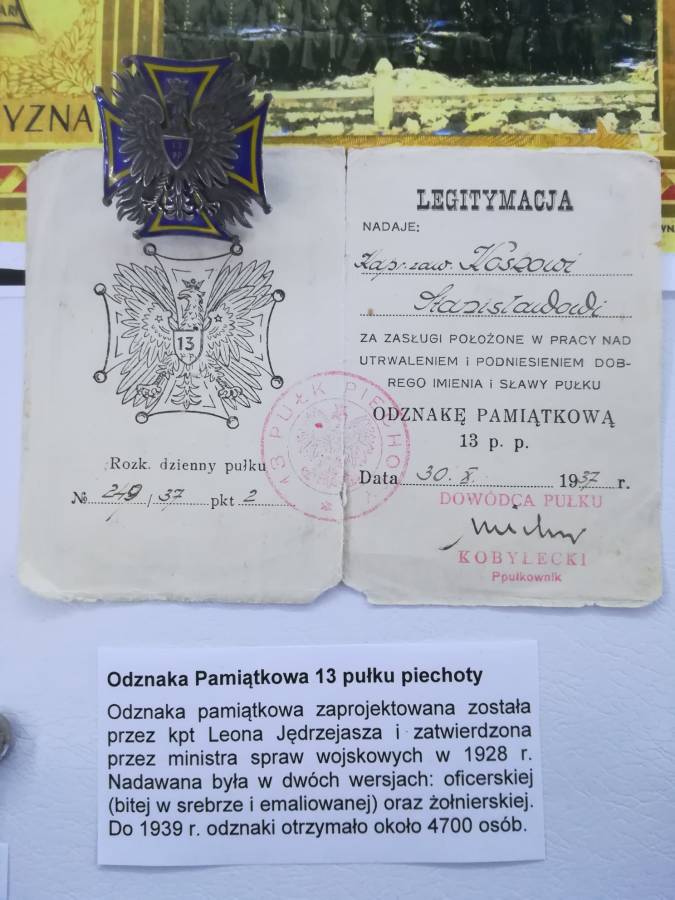 YZNA
13
LEGITYMACJA
NADAJE:
Kapr. zaw. Koszowi
Stanisławowi
ZA ZASŁUGI POŁOŻONE W PRACY NAD
UTRWALENIEM I PODNIESIENIEM DOB-
REGO IMIENIA I SŁAWY PUŁKU
ODZNAKĘ PAMIĄTKOWĄ
13 p. p.
13 PUŁK PIECHOTY
Rozk. dzienny pułku
№ 249/37 pkt 2
Data 30. X. 1937 r.
DOWÓDCA PUŁKU
KOBYŁECKI
Ppułkownik
Odznaka Pamiątkowa 13 pułku piechoty
Odznaka pamiątkowa zaprojektowana została
przez kpt Leona Jędrzejasza i zatwierdzona
przez ministra spraw wojskowych w 1928 r.
Nadawana była w dwóch wersjach: oficerskiej
(bitej w srebrze i emaliowanej) oraz żołnierskiej.
Do 1939 r. odznaki otrzymało około 4700 osób.